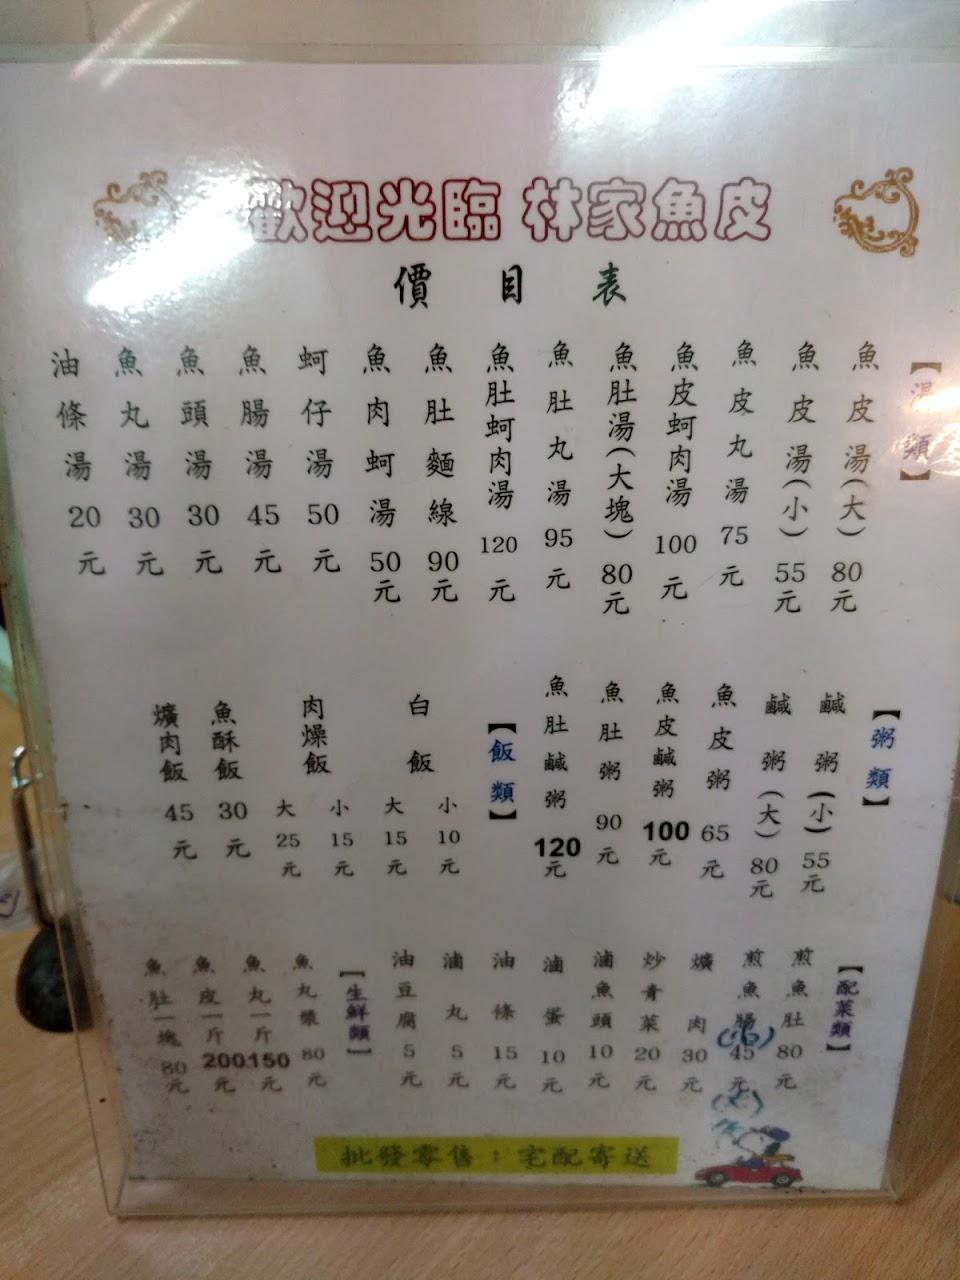 歡迎光臨 林家魚皮
價目表
【湯類】
魚皮湯(大)80元
魚皮湯(小)55元
魚皮丸湯75元
魚皮蚵肉湯100元
魚肚湯(大塊)80元
魚肚丸湯95元
魚肚蚵肉湯120元
魚肚麵線90元
魚肉蚵湯50元
蚵仔湯50元
魚腸湯45元
魚頭湯30元
魚丸湯30元
油條湯20元
【粥類】
鹹粥(小)55元
鹹粥(大)80元
魚皮粥65元
魚皮鹹粥100元
魚肚粥90元
魚肚鹹粥120元
【飯類】
白飯
小10元
大15元
肉燥飯
小15元
大25元
魚酥飯30元
爌肉飯45元
【配菜類】
煎魚肚80元
煎魚腸(小)45元
(大)
爌肉30元
炒青菜20元
滷魚頭10元
滷蛋10元
油條15元
滷丸5元
油豆腐5元
【生鮮類】
魚丸漿80元
魚丸一斤150元
魚皮一斤200元
魚肚一塊80元
批發零售:宅配寄送